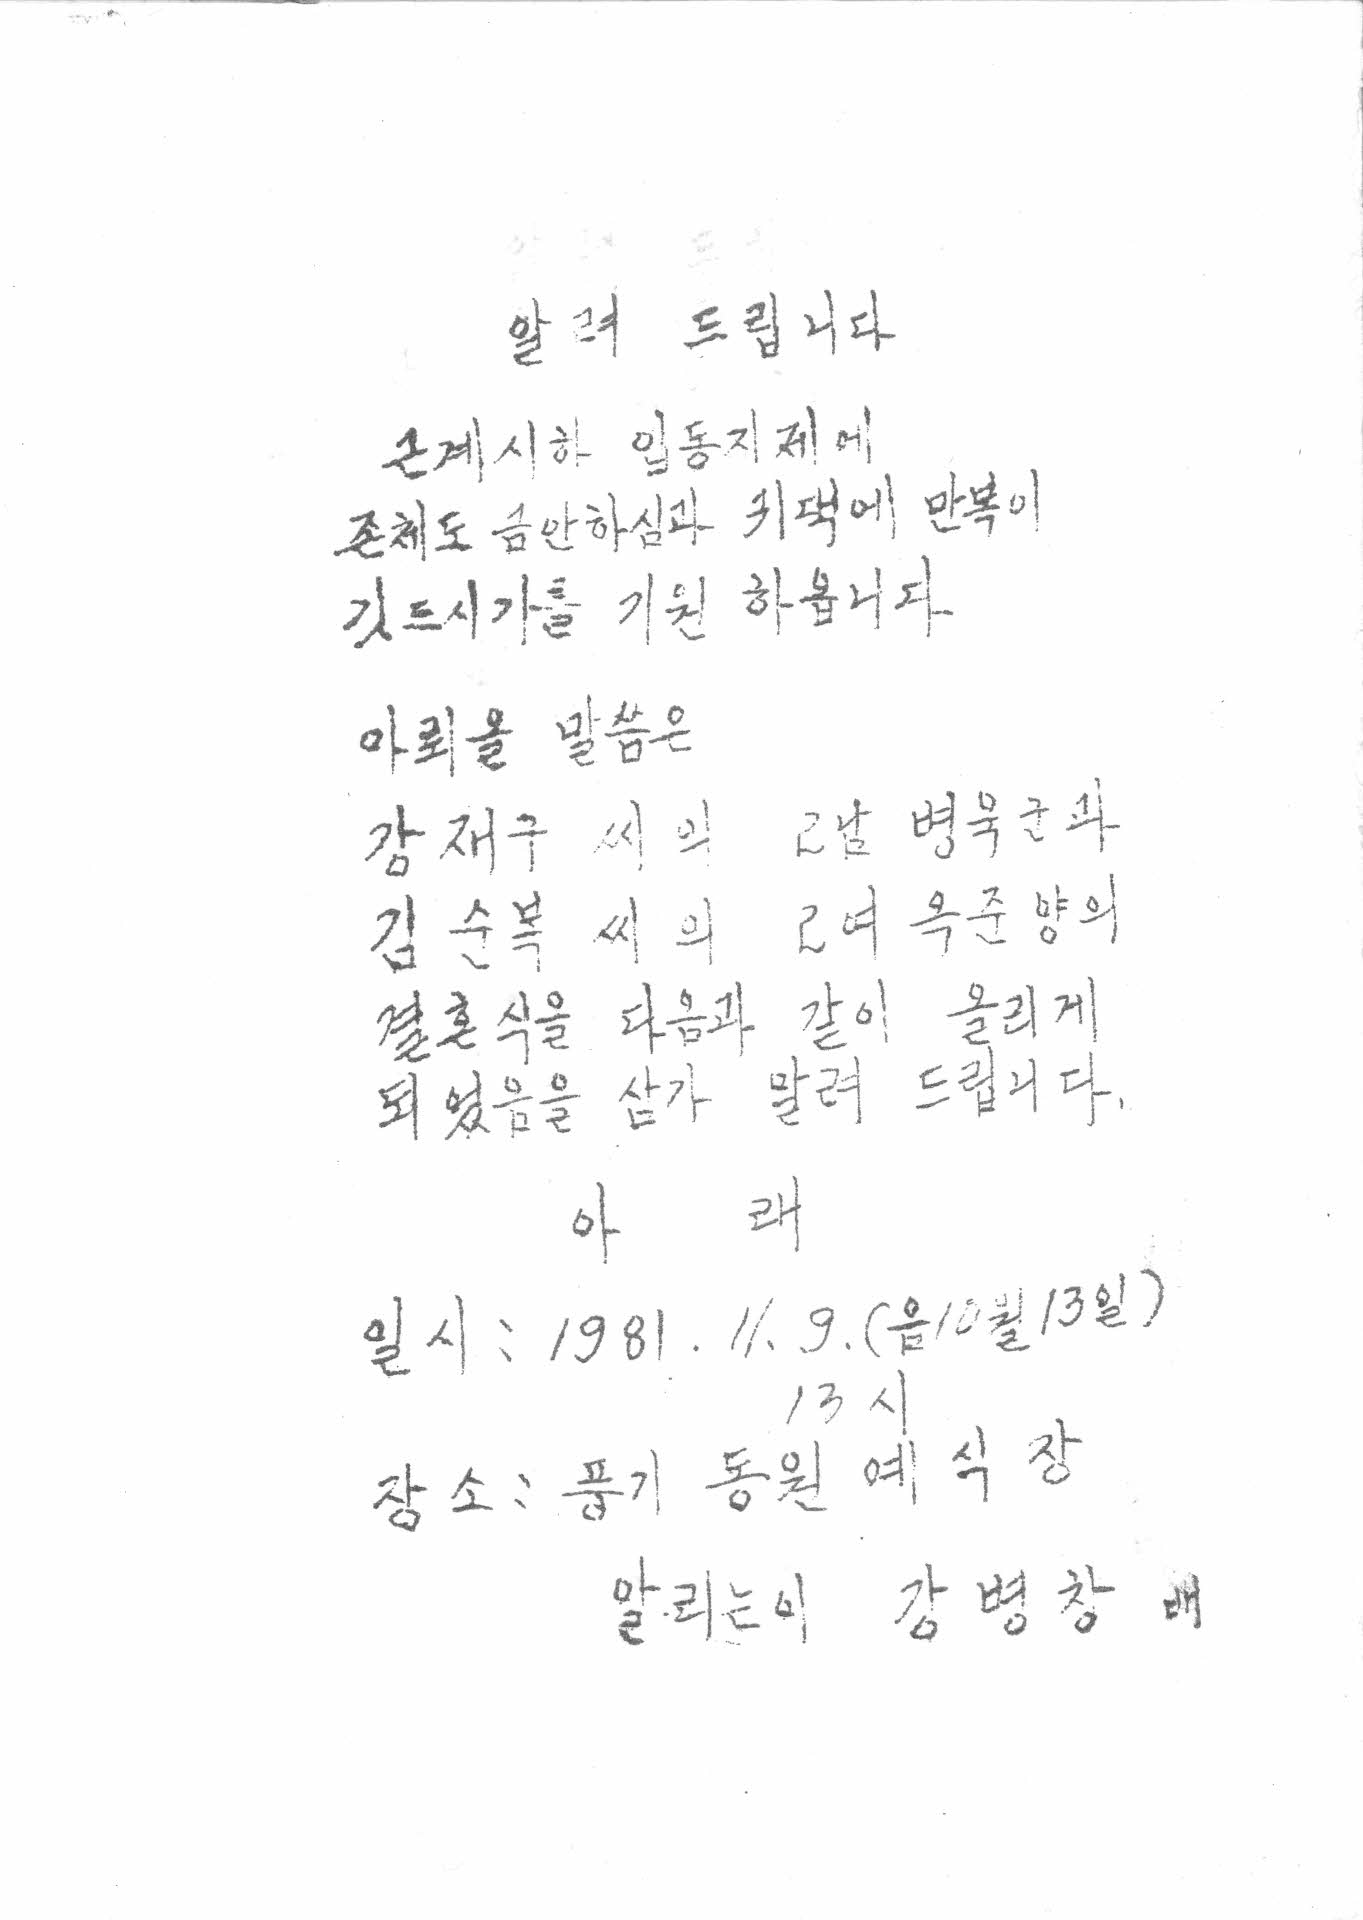 알려 드립니다
근계시하 입동지제에
존체도 금안하심과 귀댁에 만복이
깃드시기를 기원 하옵니다
아뢰올 말씀은
강재구 씨의 2남 병욱군과
김순복 씨의 2여 옥준양의
결혼식을 다음과 같이 올리게
되었음을 삼가 알려 드립니다.
아 래
일시: 1981. 11. 9. (음10월13일)
13시
장소: 풍기 동원예식장
알리는이 강병창 배